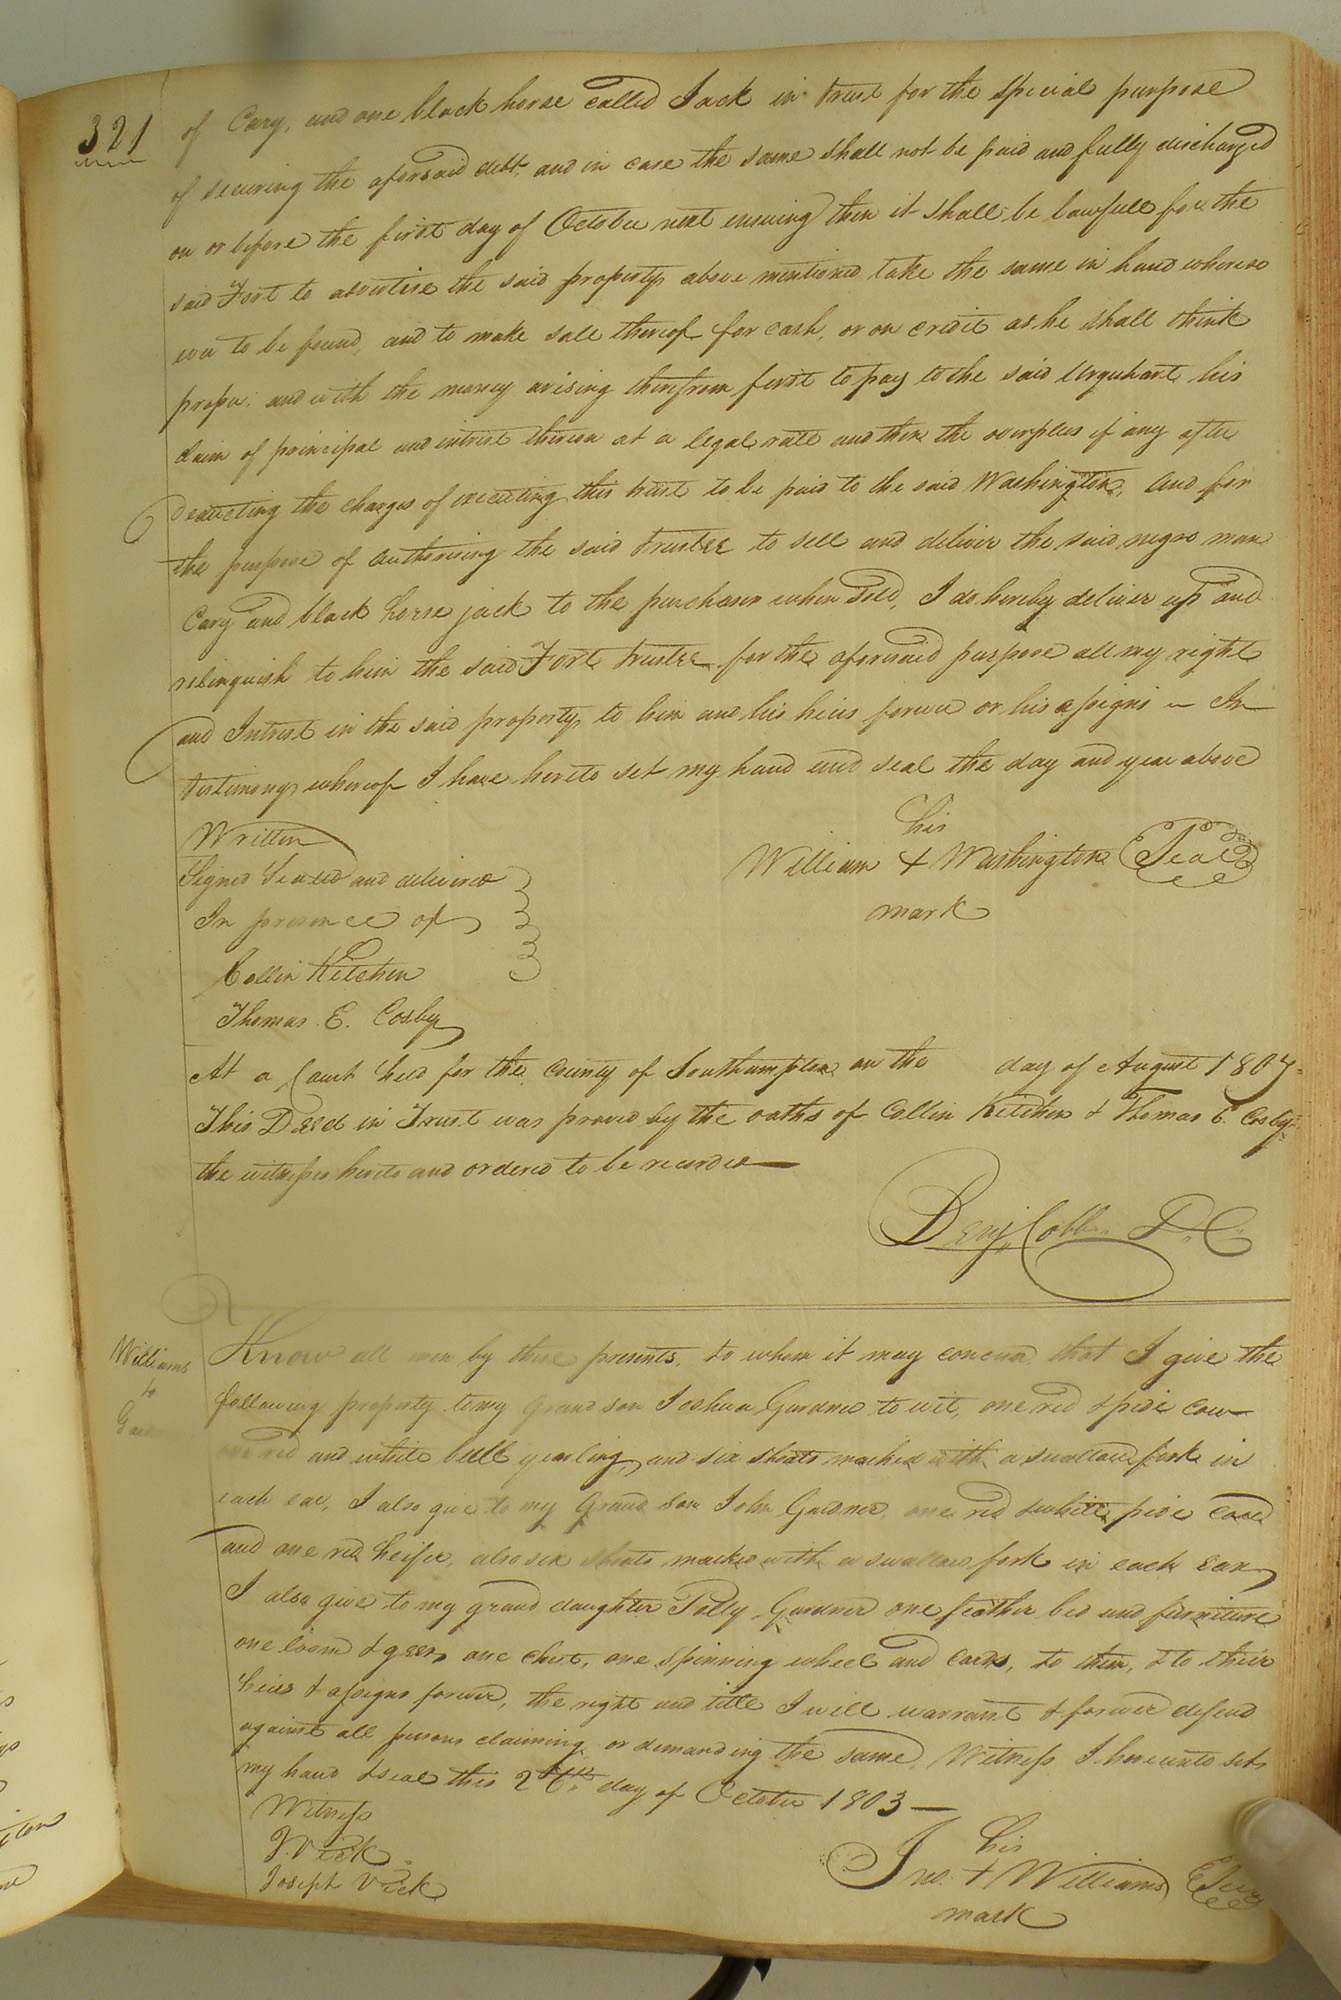 321
of Cary, and one black horse called Jack in trust for the special purpose
of securing the aforsaid debt, and in case the same shall not be paid and fully discharged
on or before the first day of October next ensuing then it shall be lawfull for the
said Fort to advertise the said property above mentioned take the same in hand whereso
ever to be found, and to make sale thereof for cash, or on credit as he shall think
proper: and with the money arising therefrom first to pay to the said Urquhart his
claim of principal and intrest thereon at a legal rate and then the overplus if any after
deducting the charges of executing this trust to be paid to the said Washington, and for
the purpose of authorising the said trustee to sell and deliver the said negro man
Cary and black horse jack to the purchaser when sold, I do hereby deliver up and
relinquish to him the said Fort trustee for the aforesaid purpose all my right
and Intrest in the said property to him and his heirs forever or his assigns – In
testimony whereof I have hereto set my hand and seal the day and year above
Written
his
William + Washington Seal
mark
Signed Sealed and delivered
In presence of
Collin Kitchen
Thomas E. Cosby
At a Court held for the County of Southampton on the day of August 1807
This Deed in Trust was proved by the oaths of Collin Kitchen & Thomas E. Cosby
the witnesses hereto and ordered to be recorded
Benj. Cobb D. C.
Williams
to
Know all men by these presents, to whom it may concern that I give the
following property to my Grand son Joshua Gardner to wit, one red & pide cow
one red and white bull yearling, and six shoats marked with a swallow fork in
each ear, I also give to my Grand son John Gardner, one red & white pide cow
and one red heifer, also six shoats marked with a swallow fork in each ear
I also give to my grand daughter Polly Gardner one feather bed and furniture
one loom & geer, one chest, one spinning wheel and cards, to them, & to their
heirs & assigns forever, the right and title I will warrant & forever defend
against all persons claiming or demanding the same. Witness I hereunto set
my hand & seal this 26th day of October 1803
Witness
J. Vick
Joseph Vick
his
Jno. + Williams Seal
mark